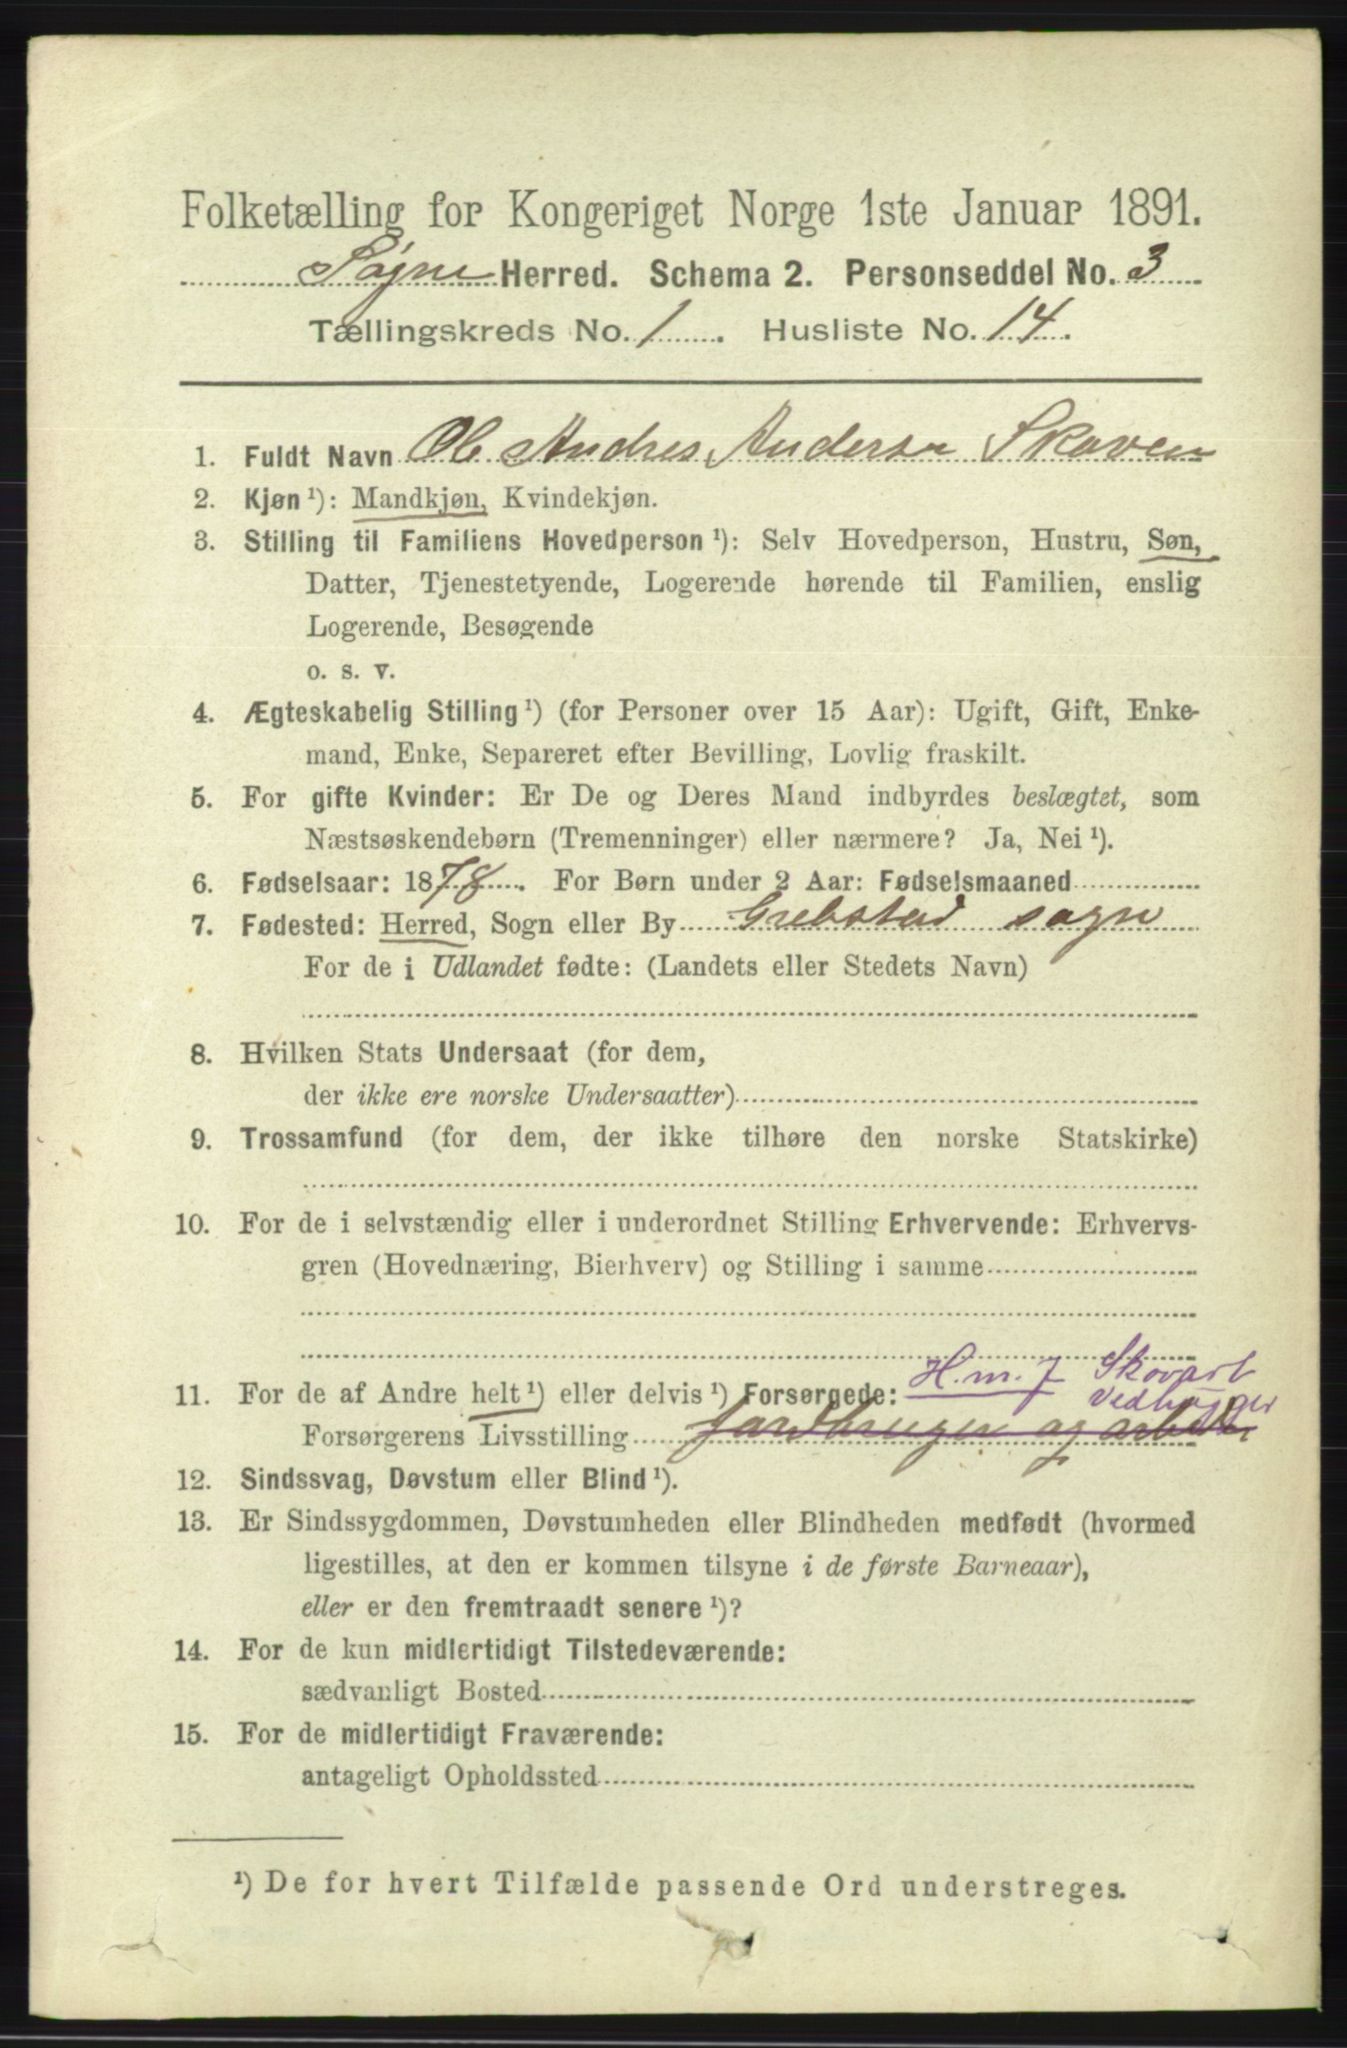 Folketælling for Kongeriget Norge 1ste Januar 1891.
Søgne Herred. Schema 2. Personseddel No. 3
Tællingskreds No. 1. Husliste No. 14.
1. Fuldt Navn Ole Andres Andersen Skoven
2. Kjøn ¹): Mandkjøn, Kvindekjøn.
3. Stilling til Familiens Hovedperson ¹): Selv Hovedperson, Hustru, Søn,
Datter, Tjenestetyende, Logerende hørende til Familien, enslig
Logerende, Besøgende
o. s. v.
4. Ægteskabelig Stilling ¹) (for Personer over 15 Aar): Ugift, Gift, Enke-
mand, Enke, Separeret efter Bevilling, Lovlig fraskilt.
5. For gifte Kvinder: Er De og Deres Mand indbyrdes beslægtet, som
Næstsøskendebørn (Tremenninger) eller nærmere? Ja, Nei ¹).
6. Fødselsaar: 1878. For Børn under 2 Aar: Fødselsmaaned
7. Fødested: Herred, Sogn eller By Grebstad sogn
For de i Udlandet fødte: (Landets eller Stedets Navn)
8. Hvilken Stats Undersaat (for dem,
der ikke ere norske Undersaatter)
9. Trossamfund (for dem, der ikke tilhøre den norske Statskirke)
10. For de i selvstændig eller i underordnet Stilling Erhvervende: Erhvervs-
gren (Hovednæring, Bierhverv) og Stilling i samme
11. For de af Andre helt ¹) eller delvis ¹) Forsørgede: H.m. J Skovarb
Vedhugger
Forsørgerens Livsstilling Jordbruger og arbeider
12. Sindssvag, Døvstum eller Blind ¹).
13. Er Sindssygdommen, Døvstumheden eller Blindheden medfødt (hvormed
ligestilles, at den er kommen tilsyne i de første Barneaar),
eller er den fremtraadt senere ¹)?
14. For de kun midlertidigt Tilstedeværende:
sædvanligt Bosted
15. For de midlertidigt Fraværende:
antageligt Opholdssted
¹) De for hvert Tilfælde passende Ord understreges.